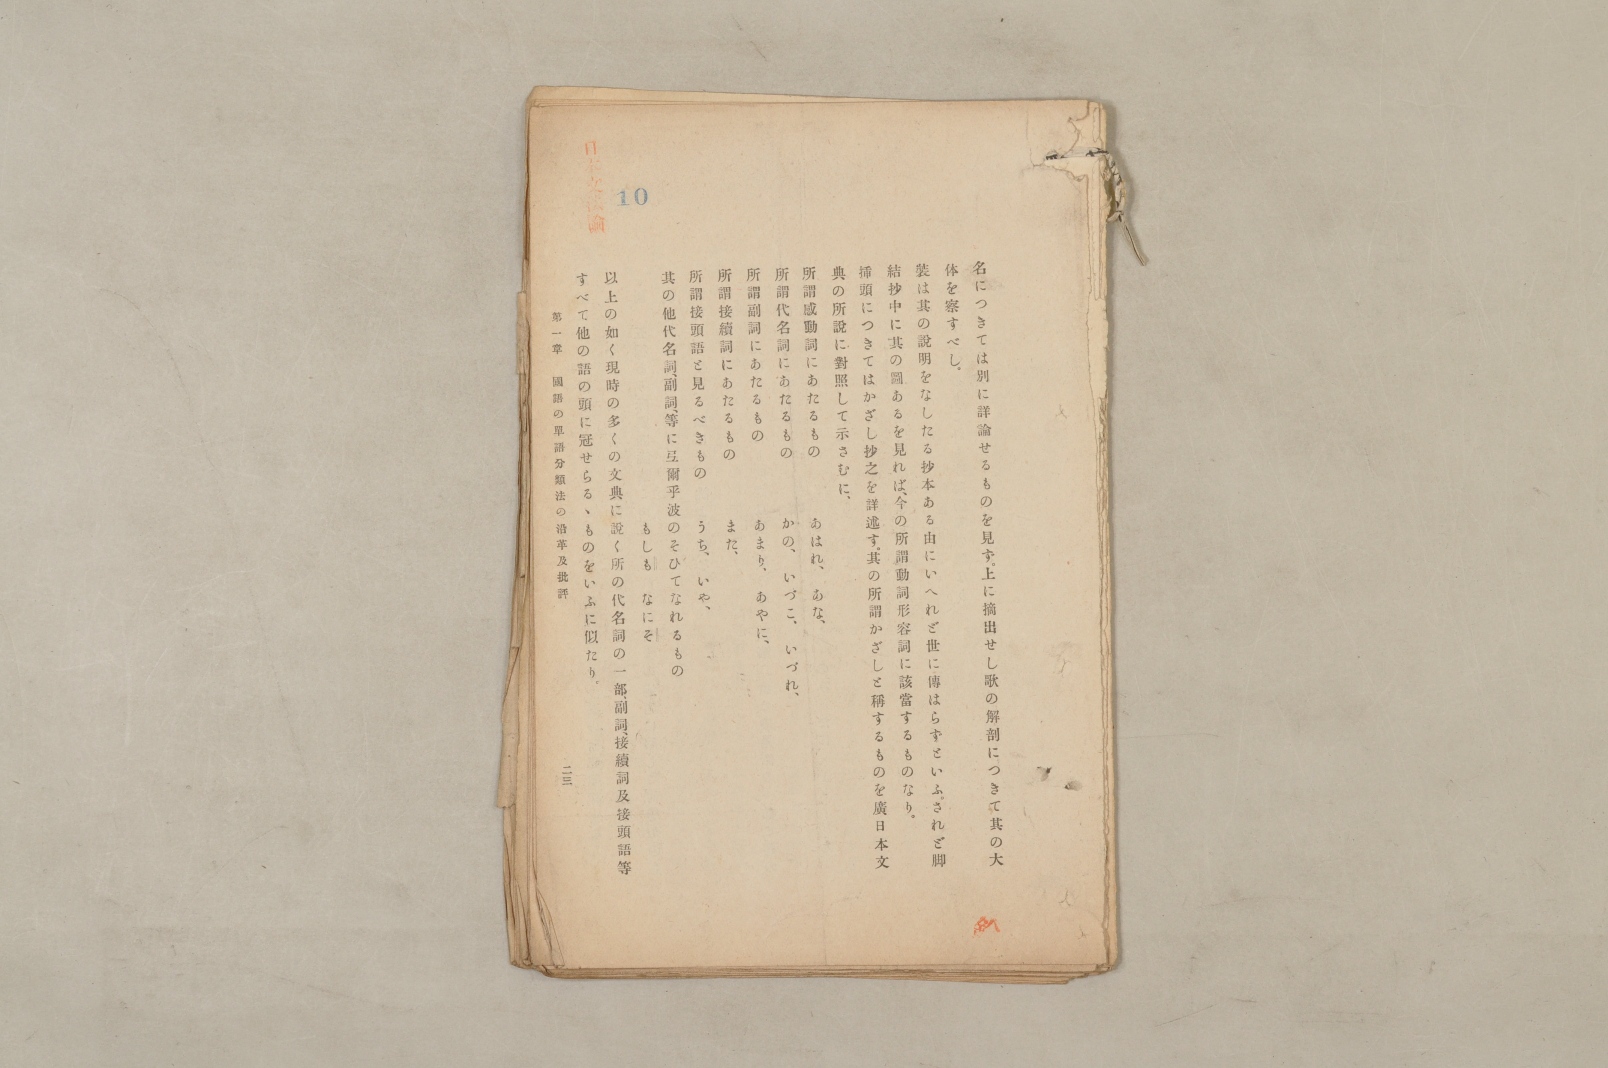 名につきては別に詳論せるものを見ず。上に摘出せし歌の解剖につきて其の大
体を察すべし。
裝は其の說明をなしたる抄本ある由にいへれど世に傳はらずといふ。されど脚
結抄中に其の圖あるを見れば、今の所謂動詞形容詞に該當するものなり。
揷頭につきてはかざし抄之を詳述す。其の所謂かざしと稱するものを廣日本文
典の所說に對照して示さむに、
所謂感動詞にあたるもの　あはれ、あな、
所謂代名詞にあたるもの　かの、いづこ、いづれ、
所謂副詞にあたるもの　あまり、あやに、
所謂接續詞にあたるもの　また、
所謂接頭語と見るべきもの　うち、いや、
其の他代名詞、副詞、等に弖爾乎波のそひてなれるもの
もしも　なにぞ
以上の如く現時の多くの文典に說く所の代名詞の一部、副詞、接續詞及接頭語等
すべて他の語の頭に冠せらるゝものをいふに似たり。
第一章　國語の單語分類法の沿革及批評
二三
10
日本文法論